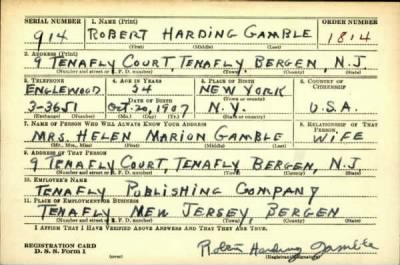 SERIAL NUMBER 1. NAME (Print) ORDER NUMBER
914 ROBERT HARDING GAMBLE 1814
(First) (Middle) (Last)
2. ADDRESS (Print)
9 TENAFLY COURT, TENAFLY, BERGEN, N.J.
(Number and street or R. F. D. number) (Town) (County) (State)
3. TELEPHONE 4. AGE IN YEARS 5. PLACE OF BIRTH 6. COUNTRY OF CITIZENSHIP
ENGLEWOOD 34 NEW YORK
3-3651 OCT. 20, 1907 N.Y. U.S.A.
(Exchange) (Number) (Mo.) (Day) (Yr.) (State or country)
7. NAME OF PERSON WHO WILL ALWAYS KNOW YOUR ADDRESS 8. RELATIONSHIP OF THAT PERSON
MRS. HELEN MARION GAMBLE WIFE
(Mr., Mrs., Miss) (First) (Middle) (Last)
9. ADDRESS OF THAT PERSON
9 TENAFLY COURT, TENAFLY, BERGEN, N.J.
(Number and street or R. F. D. number) (Town) (County) (State)
10. EMPLOYER'S NAME
TENAFLY PUBLISHING COMPANY
11. PLACE OF EMPLOYMENT OR BUSINESS
TENAFLY NEW JERSEY, BERGEN
(Number and street or R. F. D. number) (Town) (County) (State)
I AFFIRM THAT I HAVE VERIFIED ABOVE ANSWERS AND THAT THEY ARE TRUE.
REGISTRATION CARD
D. S. S. Form 1 (over) Robert Harding Gamble